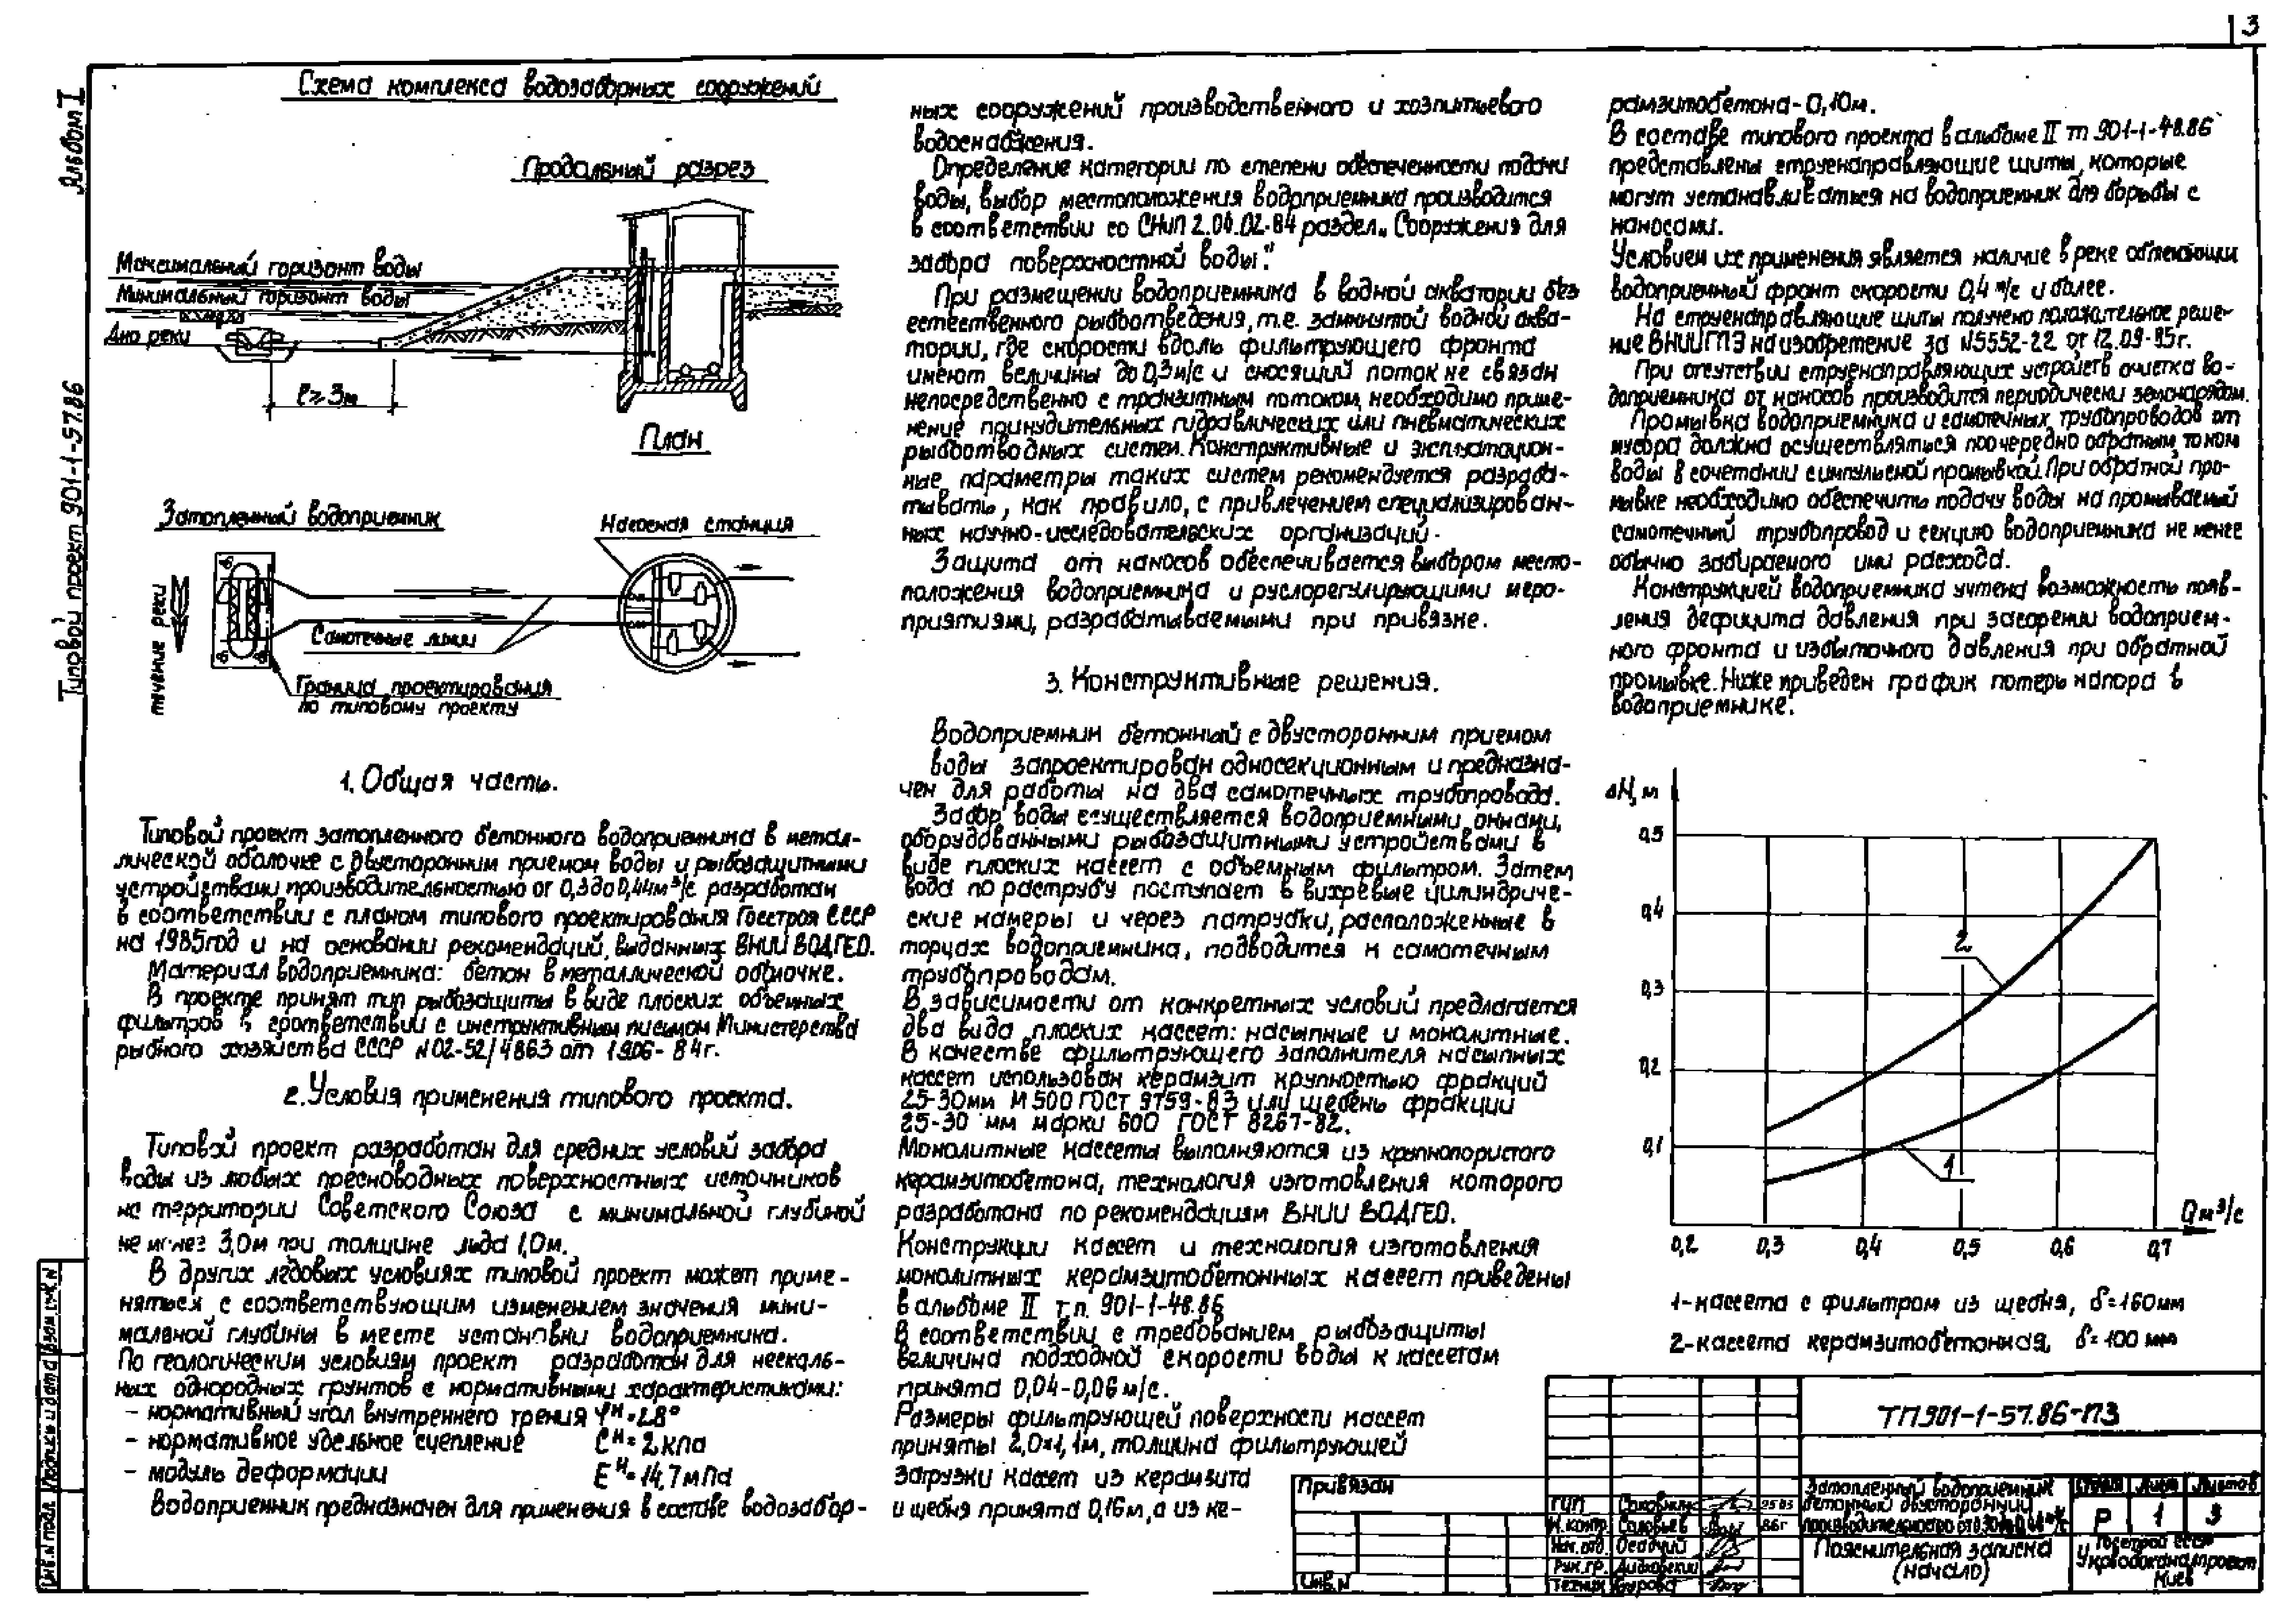 3
Альбом I
Типовой проект 901-1-57.86
Схема комплекса водозаборных сооружений
Продольный разрез
Максимальный горизонт воды
Минимальный горизонт воды
Дно реки
ℓ≥3м
План
Затопленный водоприемник
Насосная станция
течение реки
Самотечные линии
Граница проектирования
по типовому проекту
1. Общая часть.
Типовой проект затопленного бетонного водоприемника в метал-
лической оболочке с двусторонним приемом воды и рыбозащитными
устройствами производительностью от 0,3 до 0,44 м³/с разработан
в соответствии с планом типового проектирования Госстроя СССР
на 1985год и на основании рекомендаций, выданных ВНИИ ВОДГЕО.
Материал водоприемника: бетон в металлической оболочке.
В проекте принят тип рыбозащиты в виде плоских объемных
фильтров в соответствии с инструктивным письмом Министерства
рыбного хозяйства СССР N02-52/4863 от 1906-84г.
2. Условия применения типового проекта.
Типовой проект разработан для средних условий забора
воды из любых пресноводных поверхностных источников
на территории Советского Союза с минимальной глубиной
не менее 3,0м при толщине льда 1,0м.
В других ледовых условиях типовой проект может приме-
няться с соответствующим изменением значения мини-
мальной глубины в месте установки водоприемника.
По геологическим условиям проект разработан для нескаль-
ных однородных грунтов с нормативными характеристиками:
- нормативный угол внутреннего трения φᴴ=28°
- нормативное удельное сцепление Cᴴ=2кПа
- модуль деформации Eᴴ=14,7мПа
Водоприемник предназначен для применения в составе водозабор-
ных сооружений производственного и хозпитьевого
водоснабжения.
Определение категории по степени обеспеченности подачи
воды, выбор местоположения водоприемника производится
в соответствии со СНиП 2.04.02-84 раздел „Сооружения для
забора поверхностной воды".
При размещении водоприемника в водной акватории без
естественного рыбоотведения, т.е. замкнутой водной аква-
тории, где скорости вдоль фильтрующего фронта
имеют величины до 0,3м/с и сносящий поток не связан
непосредственно с транзитным потоком, необходимо приме-
нение принудительных гидравлических или пневматических
рыбоотводных систем. Конструктивные и эксплуатацион-
ные параметры таких систем рекомендуется разраба-
тывать, как правило, с привлечением специализирован-
ных научно-исследовательских организаций.
Защита от наносов обеспечивается выбором место-
положения водоприемника и руслорегулирующими меро-
приятиями, разрабатываемыми при привязке.
3. Конструктивные решения.
Водоприемник бетонный с двусторонним приемом
воды запроектирован односекционным и предназна-
чен для работы на два самотечных трубопровода.
Забор воды осуществляется водоприемными окнами,
оборудованными рыбозащитными устройствами в
виде плоских кассет с объемным фильтром. Затем
вода по раструбу поступает в вихревые цилиндриче-
ские камеры и через патрубки, расположенные в
торцах водоприемника, подводится к самотечным
трубопроводам.
В зависимости от конкретных условий предлагается
два вида плоских кассет: насыпные и монолитные.
В качестве фильтрующего заполнителя насыпных
кассет использован керамзит крупностью фракций
25-30мм М500 ГОСТ 9759-83 или щебень фракции
25-30 мм марки 600 ГОСТ 8267-82.
Монолитные кассеты выполняются из крупнопористого
керамзитобетона, технология изготовления которого
разработана по рекомендациям ВНИИ ВОДГЕО.
Конструкции кассет и технология изготовления
монолитных керамзитобетонных кассет приведены
в альбоме II т.п. 901-1-48.86
В соответствии с требованием рыбозащиты
величина подходной скорости воды к кассетам
принята 0,04-0,06 м/с.
Размеры фильтрующей поверхности кассет
приняты 2,0×1,1м, толщина фильтрующей
загрузки кассет из керамзита
и щебня принята 0,16м, а из ке-
рамзитобетона-0,10м.
В составе типового проекта в альбоме II тп 901-1-48.86
представлены струенаправляющие щиты, которые
могут устанавливаться на водоприемник для борьбы с
наносами.
Условием их применения является наличие в реке обтекающих
водоприемный фронт скорости 0,4 м/с и более.
На струенаправляющие щиты получено положительное реше-
ние ВНИИГПЭ на изобретение за N5552-22 от 12.09-85г.
При отсутствии струенаправляющих устройств очистка во-
доприемника от наносов производится периодически земснарядом.
Промывка водоприемника и самотечных трубопроводов от
мусора должна осуществляться поочередно обратным током
воды в сочетании с импульсной промывкой. При обратной про-
мывке необходимо обеспечить подачу воды на промываемый
самотечный трубопровод и секцию водоприемника не менее
обычно забираемого ими расхода.
Конструкцией водоприемника учтена возможность появ-
ления дефицита давления при засорении водоприем-
ного фронта и избыточного давления при обратной
промывке. Ниже приведен график потерь напора в
водоприемнике:
ΔH, м
0,5
0,4
0,3
0,2
0,1
2
1
Qм³/с
0,2 0,3 0,4 0,5 0,6 0,7
1-кассета с фильтром из щебня, δ=160мм
2-кассета керамзитобетонная, δ=100 мм
ТП 901-1-57.86-ПЗ
Привязан
Инв.N
ГИП
Н.контр. Соловьев 86г
Нач.отд. Осадчий
Рук.гр.
Техник Бурова
Затопленный водоприемник
бетонный двусторонний
производительностью от 0,30 до 0,44 м³/с
Стадия Лист Листов
Р 1 3
Пояснительная записка
(начало)
Госстрой СССР
Укрводоканалпроект
Киев
Взам. инв. N
Подпись и дата
Инв. N подл.